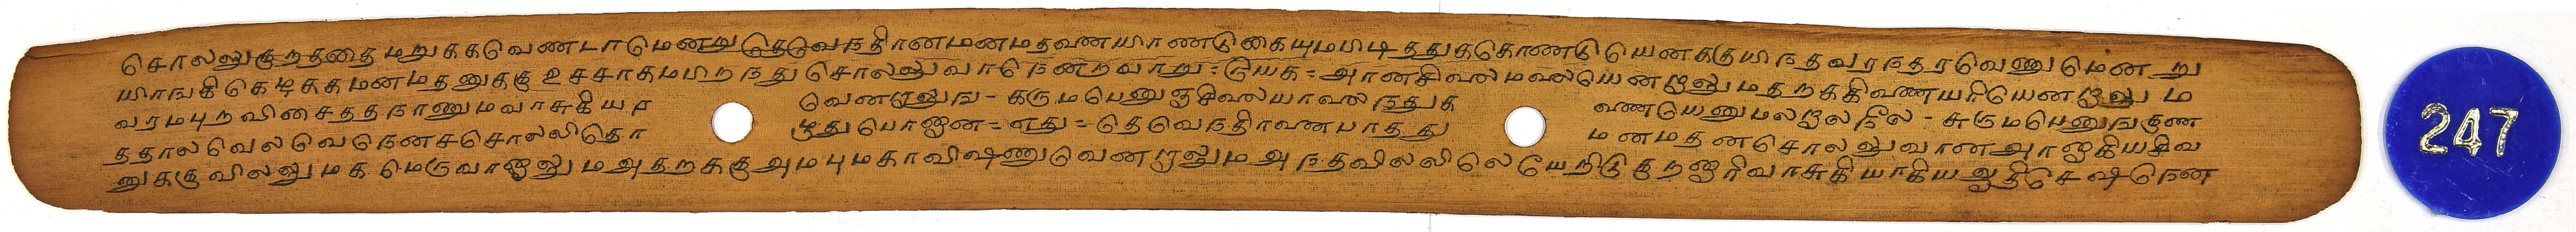 சொலலுகுறததை மறுககவெணடாமெனறு தெவெநதிரனமனமதவண யாணடுகையுமபிடிததுககொணடு யெனககுயிநதவரநதரவெணுமெனறு
யிரஙகிகெடிககமனமதனுககு உசசாகமபிறநது சொலலுவாநெனறவாறு = டுயக = அரனசிலைமலையெனறாலு மதறககிவணயரியெனறாலும
வரமபுறவிசைததநாணுமவாசுகியர வெனறாலுங - கருமபெனுஞசிலையாலைநதுக வணடியெனுமலறால நீல - சுருமபெனுஙகுண
ததாலவெலவெநெனசசொலலிதொ ழுதுபொனான = எது = தெவெநதிரவணபாதது மனமதனசொலலுவானஅரனாகியசிவ
னுககுவிலலுமக மெருவானாலுமஅதறககுஅமபுமகாவிஷணுவெனறாலுமஅநதவிலலிலெயேறிடுகுறனாரிவாசுகியாகியஆதிசெஷநென